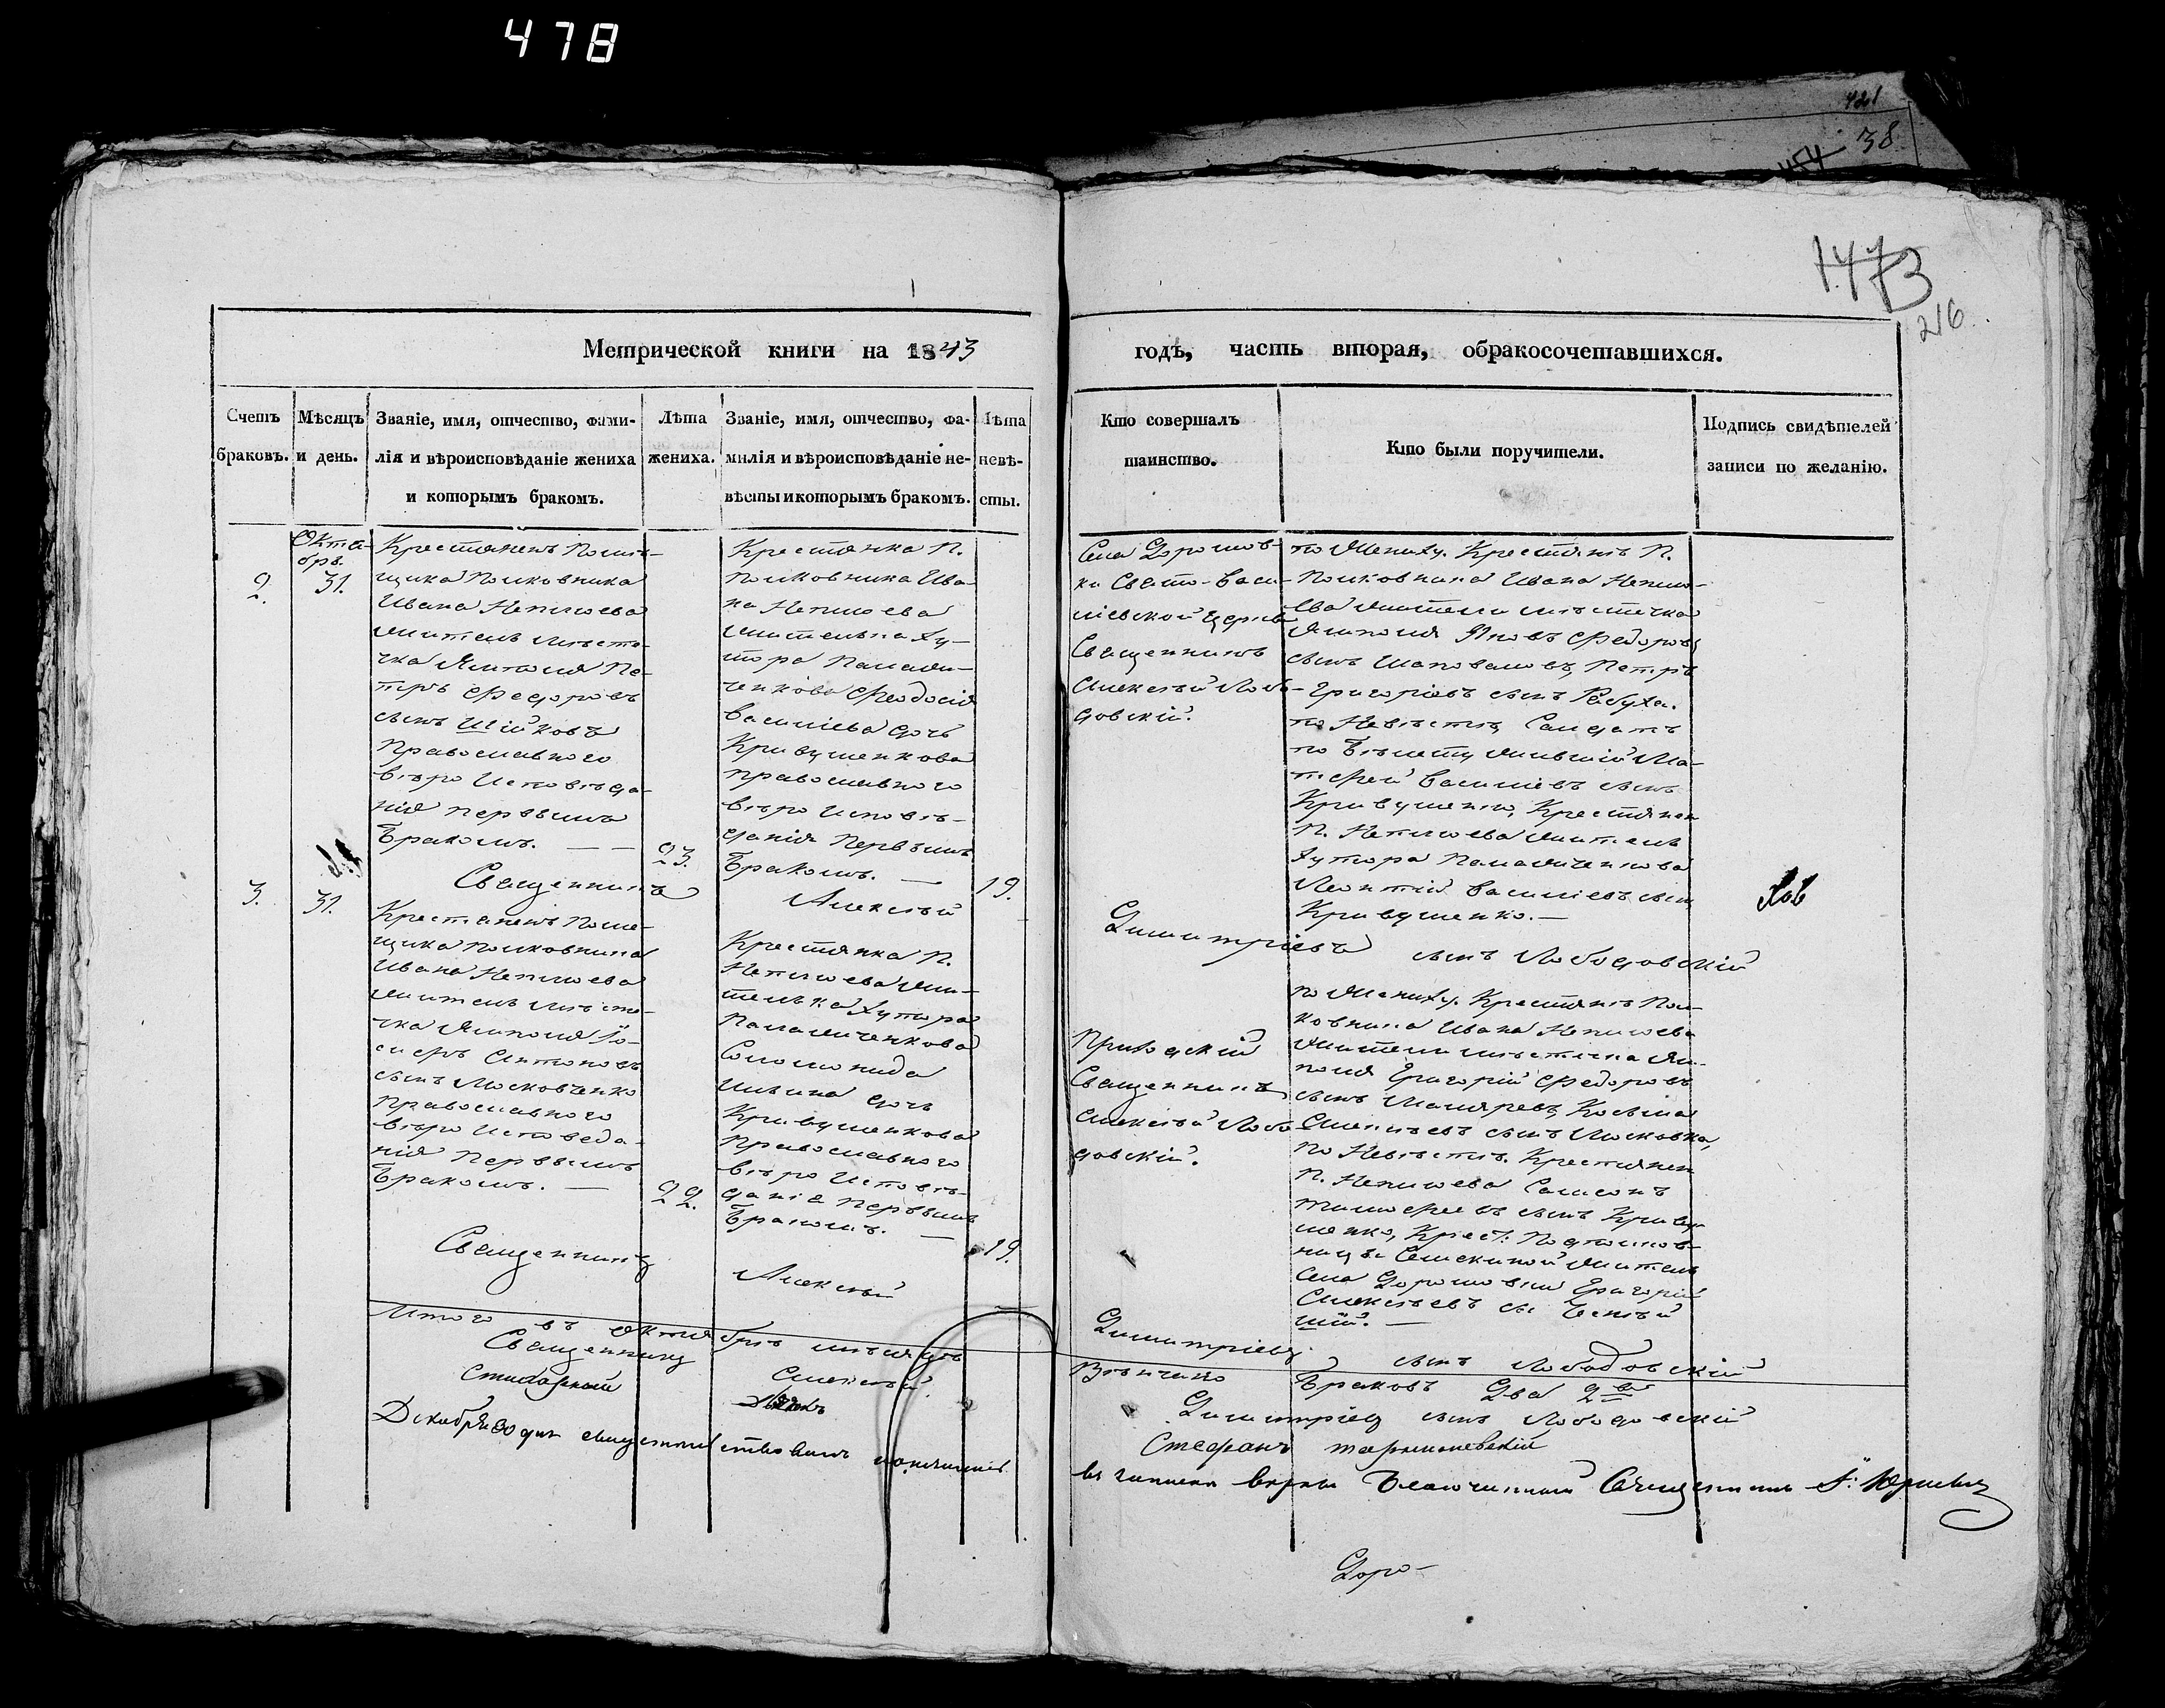 478
421
38
454
1473
216
Метрической книги на 1843
годъ, часть вторая, обракосочетавшихся.
Счетъ
браковъ.
Мѣсяцъ
и день.
Званіе, имя, отчество, фами-
лія и вѣроисповѣданіе жениха
и которымъ бракомъ.
Лѣта
жениха.
Званіе, имя, отчество, фа-
милія и вѣроисповѣданіе не-
вѣсты и которымъ бракомъ.
Лѣта
невѣ-
сты.
Кто совершалъ
таинство.
Кто были поручители.
Подпись свидѣтелей
записи по желанію.
2.
Октя-
брь.
31.
Крестяненъ Помѣ-
щика Полковника
Ивана Неплюева
житель мѣсте-
чка Ямполя Пе-
тръ Федоровъ
сынъ Шійковъ
Православного
вѣро Исповѣда-
нія первымъ
Бракомъ. —
23.
Крестянка П.
Полковника Ива-
на Неплюева
жителька ху-
тора Палами-
ченкова Феодосія
Василіева дочь
Кривушенкова
православного
вѣро Исповѣ-
данія Первымъ
Бракомъ. —
19.
Села Дорошов-
ки Свято-Васи-
ліевской Церкви
Священникъ
Алексѣй Лобо-
довскій.
по Жениху. Крестянѣ П.
Полковника Ивана Неплю-
ева жители мѣстечка
Ямполя Яковъ Федоровъ
сынъ Шаповаловъ, Петръ
Григоріевъ сынъ Рабуха.
по Невѣстѣ, Салдатъ
по Билету жившій Ма-
тфей Василіевъ сынъ
Кривушенко, Крестянен
П. Неплюева житель
хутора Паламиченкова
Леонтій Василіевъ сын
Кривушенко. —
Священникъ
Алексѣй
Димитріевъ
сынъ Лободовскій
3.
31.
Крестянень Поме-
щика Полковника
Ивана Неплюева
житель мѣсте-
чка Ямполя Іо-
сифъ Антоновъ
сынъ Московченко
Православного
вѣро Исповеда-
нія Первымъ
Бракомъ. —
22.
Крестянка П.
Неплюева жи-
телька хутора
Паламиченкова
Соломонида
Ильина дочь
Кривушенкова
Православного
вѣро Исповѣ-
данія первымъ
Бракомъ. —
19.
Приходскій
Священникъ
Алексѣй Лобо-
довскій.
по Жениху. Крестянѣ Пол-
ковника Ивана Неплюева
жители мѣстечка Ям-
поля Григорій Федоровъ
сынъ Маляревъ, Косьма
Алексѣевъ сынъ Московка,
По Невѣстѣ. Крестянен
П. Неплюева Самсонъ
Тимофеевъ сынъ Криву-
шенко, Крест: Подполков-
ницы Селекиной житель
села Дорошовки Григорій
Алексѣевъ сы
шій. —
Священникъ
Алексѣй
Димитріевъ
сынъ Лободовскій
Итого въ октябрѣ мѣсяцѣ
Вѣнчано
Браковъ Два 2
Священникъ
Алексѣй
Димитріевъ сынъ Лободовскій
Стефанъ
Декабря 30 дня свидетельствовалъ
въ записки верны Благочинный Священникъ
Доро-